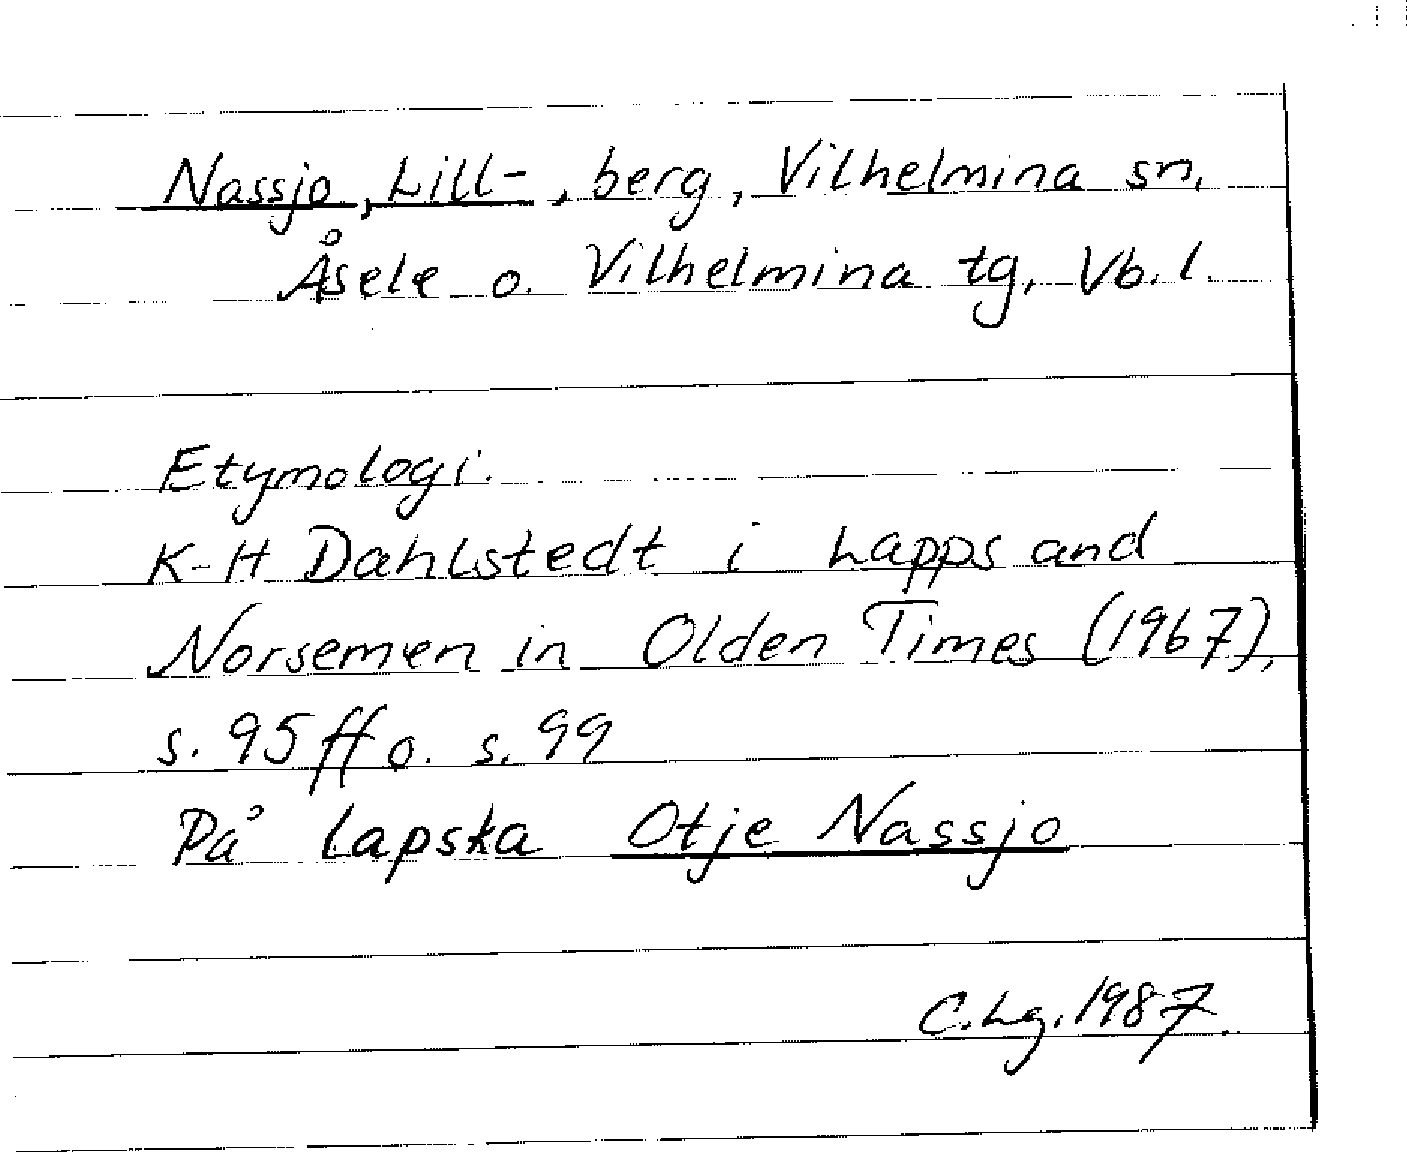 Nassjo, Lill-, berg, Vilhelmina sn,
Åsele o. Vilhelmina tg, Vb. l.
Etymologi.
K-H Dahlstedt i Lapps and
Norsemen in Olden Times (1967),
s. 95 ff o. s. 99
På lapska Otje Nassjo
C. Lg. 1987.